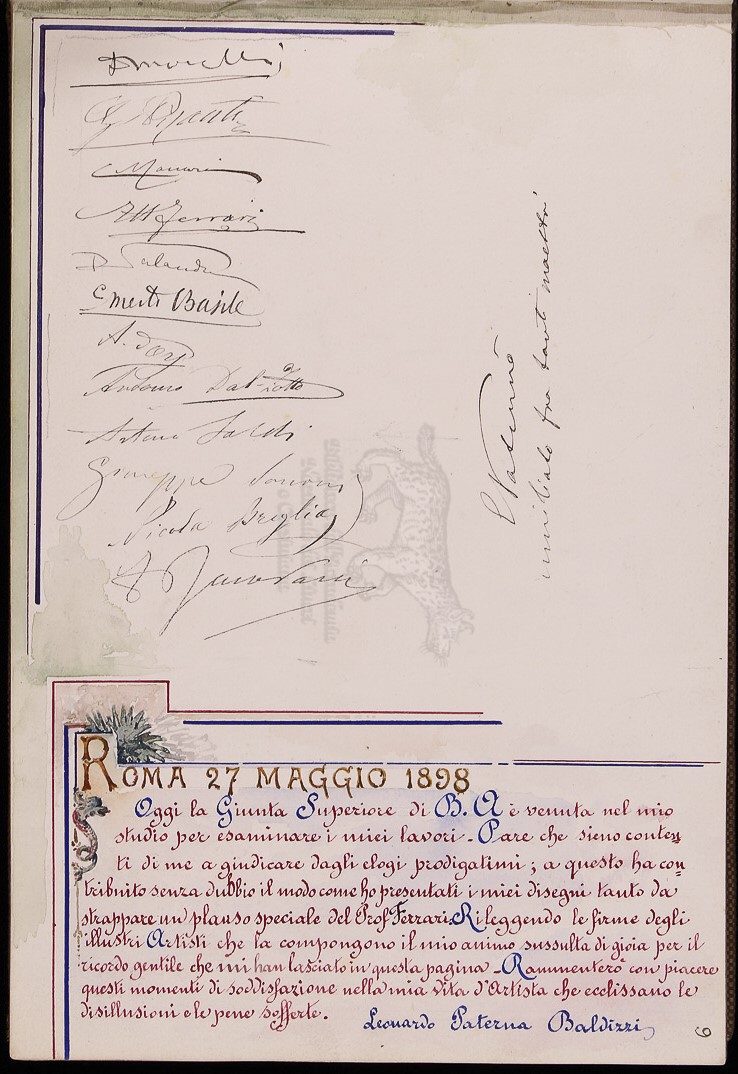 D Morelli
Maccari
Ett Ferrari
Ernesto Basile
A. d'Orsi
Antonio Dal Zotto
Arturo Faldi
Giuseppe
Nicola Breglia
umiliato fra tanti maestri
ROMA 27 MAGGIO 1898
Oggi la Giunta Superiore di B. A è venuta nel mio
studio per esaminare i miei lavori - Pare che sieno conten=
ti di me a giudicare dagli elogi prodigatimi ; a questo ha con=
tribuito senza dubbio il modo come ho presentati i miei disegni tanto da
strappare un plauso speciale del Prof. Ferrari. Rileggendo le firme degli
illustri Artisti che la compongono il mio animo sussulta di gioia per il
ricordo gentile che mi han lasciato in questa pagina - Rammenterò con piacere
questi momenti di soddisfazione nella mia vita d'Artista che ecclissano le
disillusioni e le pene sofferte.
Leonardo Paterna Baldizzi
6